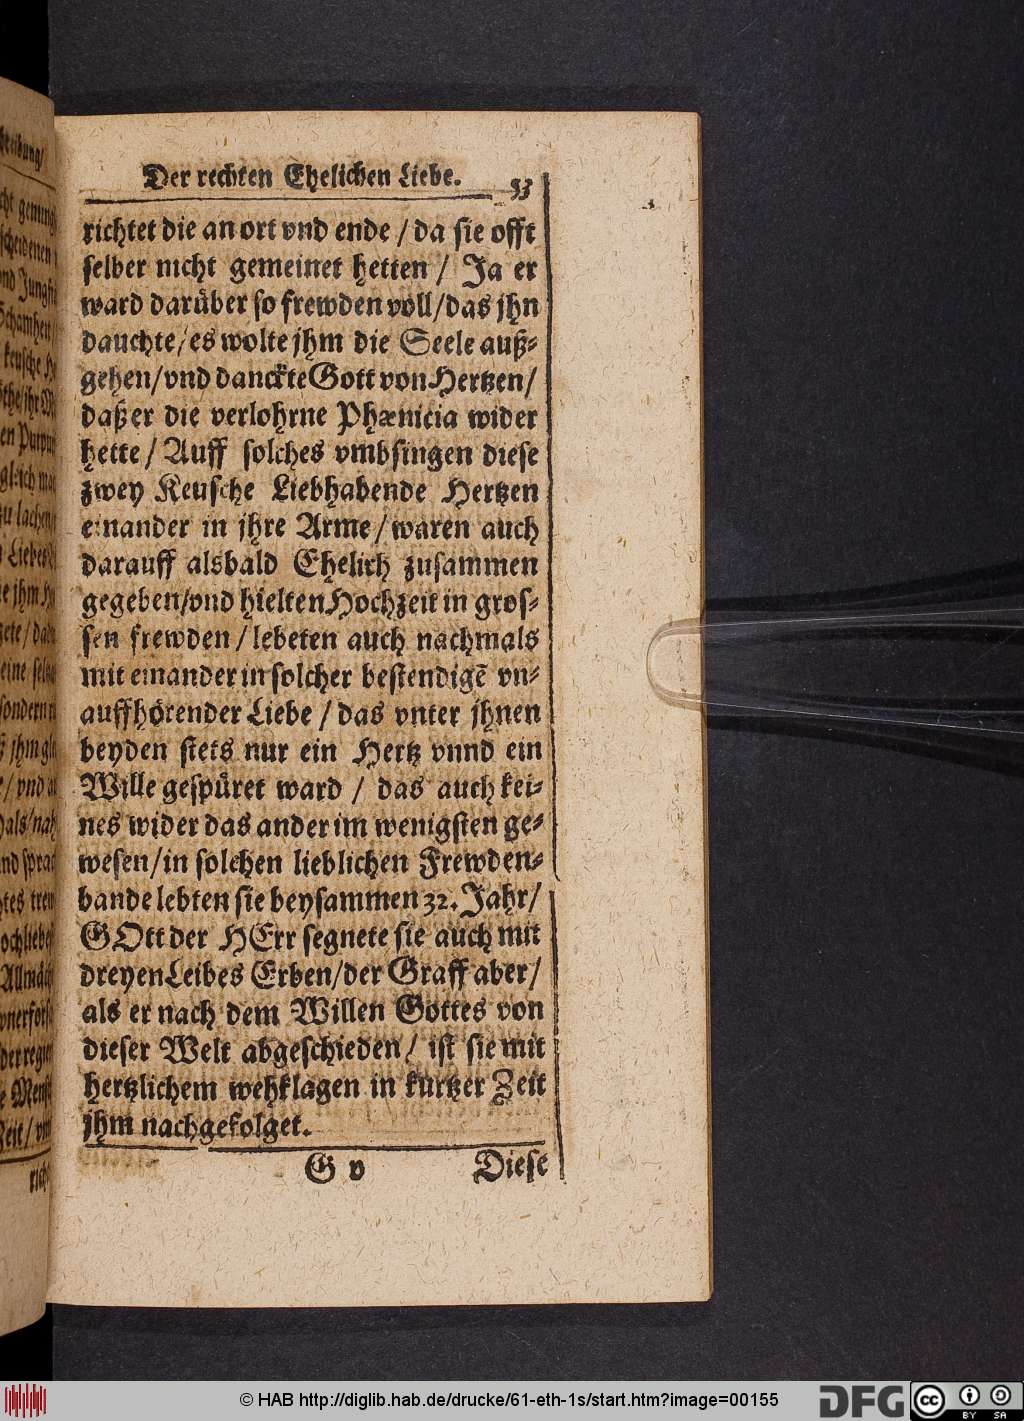 Der rechten Ehelichen Liebe. 53
richtet die an ort vnd ende / da sie offt
selber nicht gemeinet hetten / Ja er
ward darüber so frewden voll / das jhn
dauchte / es wolte jhm die Seele auß-
gehen / vnd danckte Gott von Hertzen /
daß er die verlohrne Phænicia wider
hette / Auff solches vmbfingen diese
zwey Keusche Liebhabende Hertzen
einander in jhre Arme / waren auch
darauff alsbald Ehelich zusammen
gegeben / vnd hielten Hochzeit in gros-
sen frewden / lebeten auch nachmals
mit einander in solcher bestendigē vn-
auffhörender Liebe / das vnter jhnen
beyden stets nur ein Hertz vnnd ein
Wille gespüret ward / das auch kei-
nes wider das ander im wenigsten ge-
wesen / in solchen lieblichen Frewden-
bande lebten sie beysammen 32. Jahr /
GOtt der HErr segnete sie auch mit
dreyen Leibes Erben / der Graff aber /
als er nach dem Willen Gottes von
dieser Welt abgeschieden / ist sie mit
hertzlichem wehklagen in kurtzer Zeit
jhm nachgefolget.
G v Diese
© HAB http://diglib.hab.de/drucke/61-eth-1s/start.htm?image=00155
DFG cc BY SA